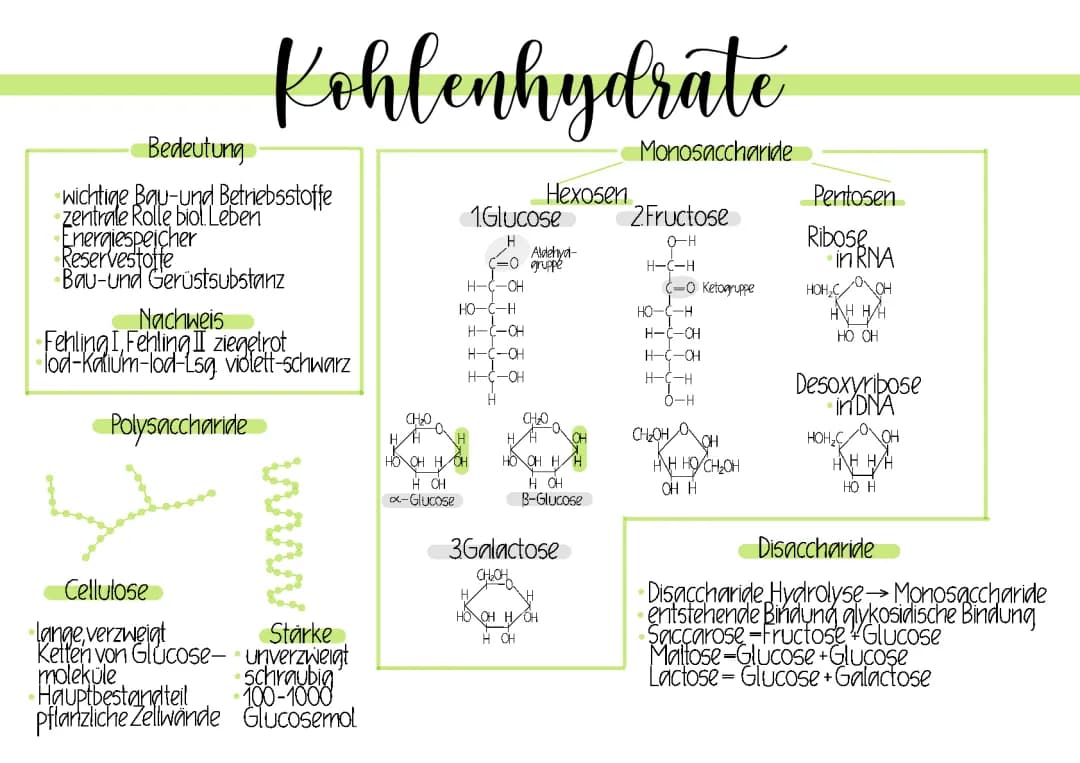 Kohlenhydrate
Bedeutung
• wichtige Bau-und Betriebsstoffe
• zentrale Rolle biol. Leben
• Energiespeicher
• Reservestoffe
• Bau-und Gerüstsubstanz
Nachweis
• Fehling I, Fehling II ziegelrot
• Iod-Kalium-Iod-Lsg. violett-schwarz
Polysaccharide
Cellulose
• lange, verzweigt
Ketten von Glucose-
moleküle
• Hauptbestandteil
pflanzliche Zellwände
Stärke
• unverzweigt
• schraubig
• 100-1000
Glucosemol.
Monosaccharide
Hexosen
1.Glucose
H
C=O
Aldehyd-
gruppe
H-C-OH
HO-C-H
H-C-OH
H-C-OH
H-C-OH
H
CH₂O
O
H H H
HO OH H OH
H OH
α-Glucose
CH₂O
O
H H OH
HO OH H H
H OH
β-Glucose
2.Fructose
O-H
H-C-H
C=O Ketogruppe
HO-C-H
H-C-OH
H-C-OH
H-C-H
O-H
CH₂OH O OH
H H HO CH₂OH
OH H
3.Galactose
CH₂OH
O
H H
HO OH H OH
H OH
Pentosen
Ribose
• in RNA
HOH₂C O OH
H H H H
HO OH
Desoxyribose
• in DNA
HOH₂C O OH
H H H H
HO H
Disaccharide
• Disaccharide Hydrolyse → Monosaccharide
• entstehende Bindung glykosidische Bindung
• Saccarose = Fructose + Glucose
Maltose = Glucose + Glucose
Lactose = Glucose + Galactose